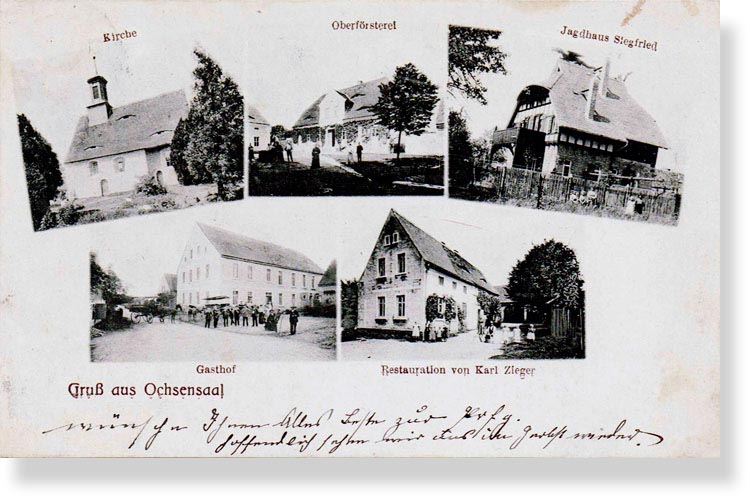 Kirche
Oberförsterei
Jagdhaus Siegfried
Gasthof
Restauration von Karl Zieger
Gruß aus Ochsensaal
wünsche Ihnen Alles Beste zur Prfg.
hoffentlich sehen wir uns im Herbst wieder.